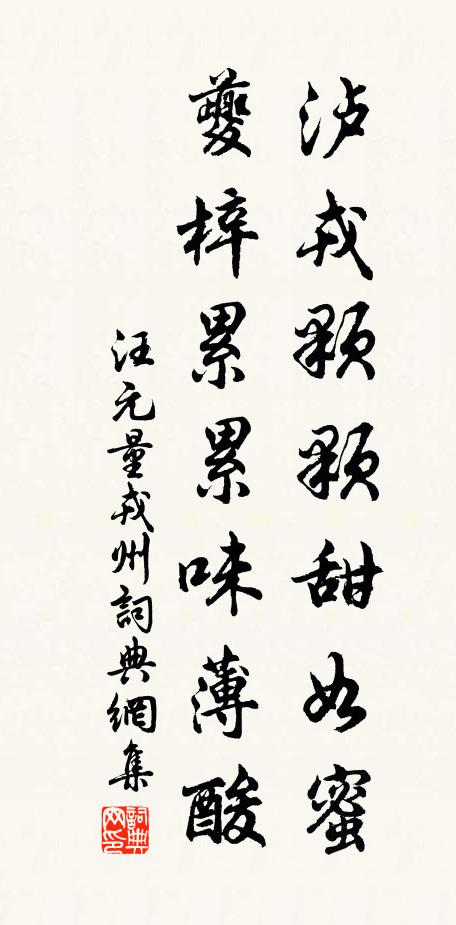 泸戎顆顆甜如蜜
夔梓累累味薄酸
汪元量戎州詞典網集
詞典
网印